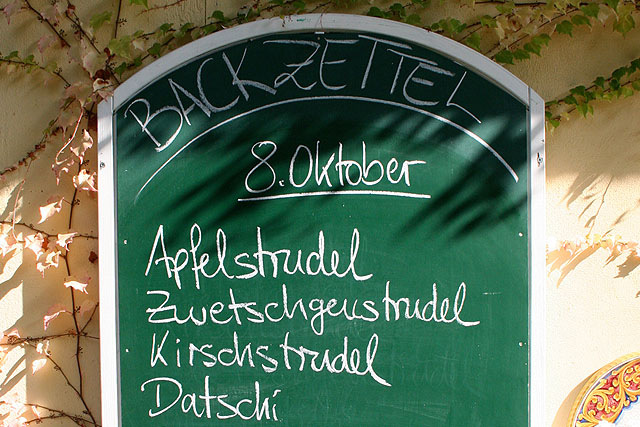 BACKZETTEL
8. Oktober
Apfelstrudel
Zwetschgenstrudel
Kirschstrudel
Datschi